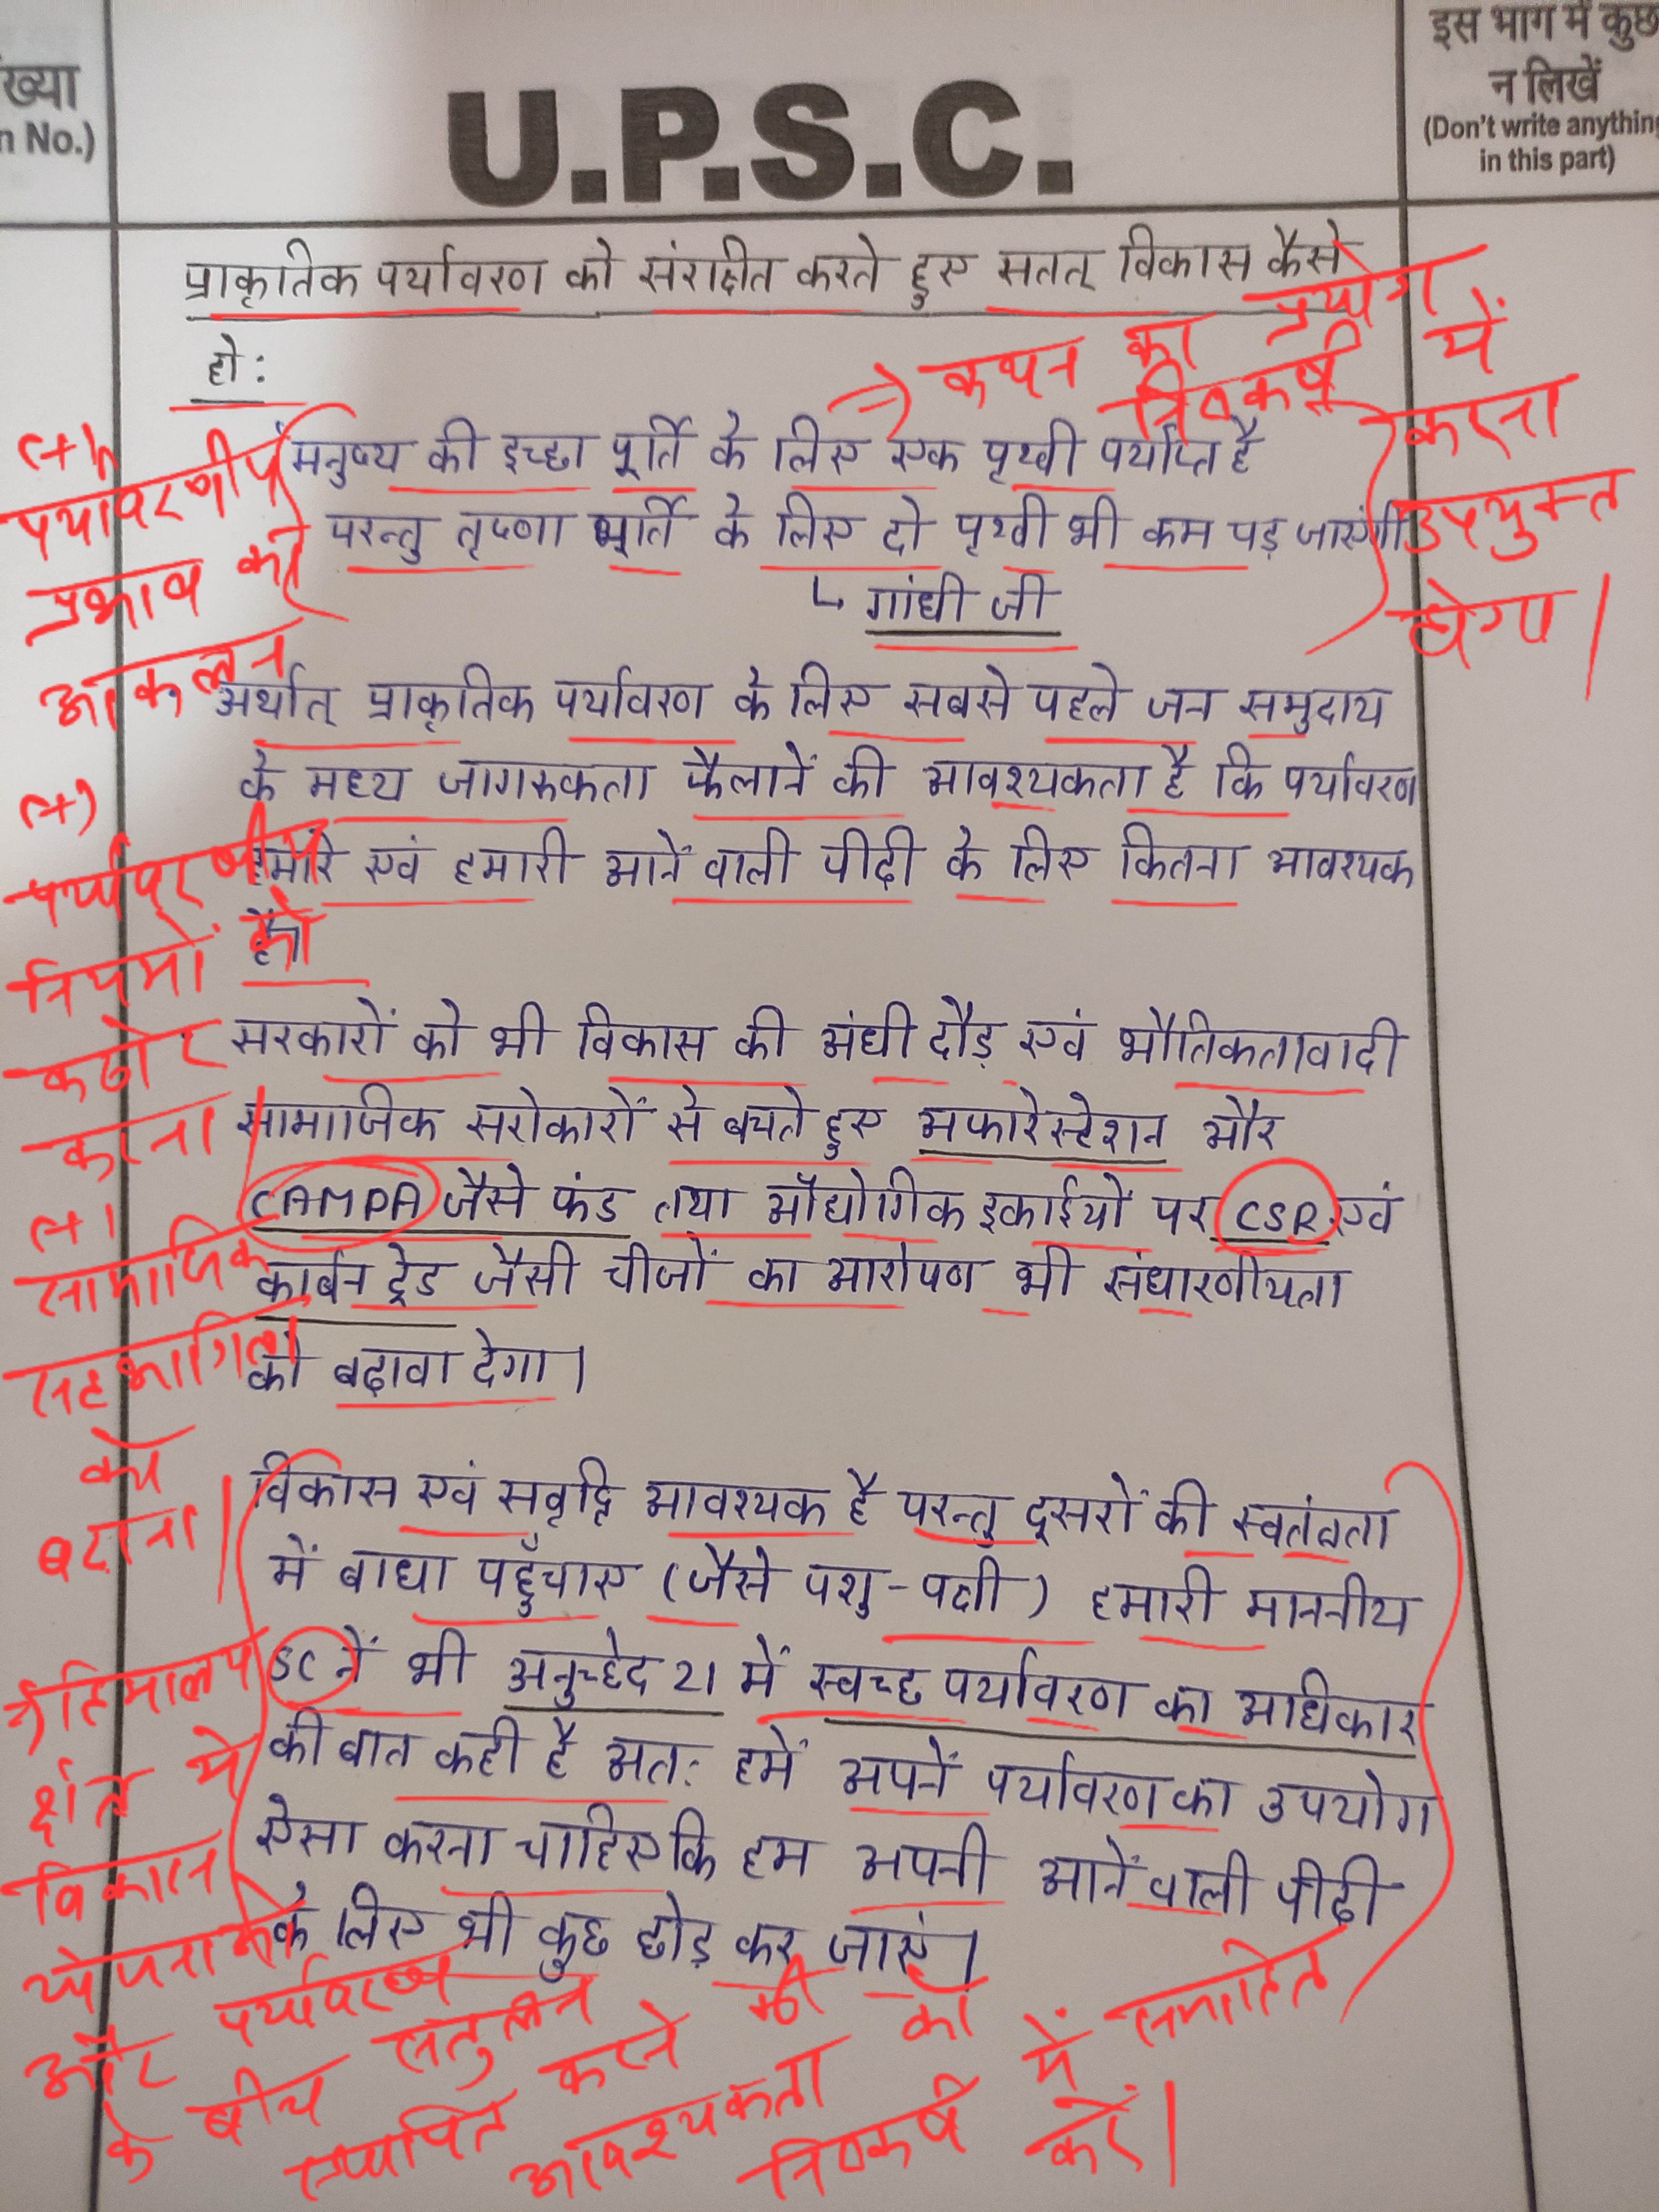 ख्या
n No.)
U.P.S.C.
इस भाग में कुछ
न लिखें
(Don't write anything
in this part)
प्राकृतिक पर्यावरण को संरक्षित करते हुए सतत् विकास कैसे
हो:
=) कथन का प्रयोग
निष्कर्ष में
करना
उपयुक्त
होगा।
मनुष्य की इच्छा पूर्ति के लिए एक पृथ्वी पर्याप्त है
परन्तु तृष्णा पूर्ति के लिए दो पृथ्वी भी कम पड़ जाएंगी
↳ गांधी जी
(+)
पर्यावरणीय
प्रभाव को
आकलन
अर्थात् प्राकृतिक पर्यावरण के लिए सबसे पहले जन समुदाय
के मध्य जागरुकता फैलानें की आवश्यकता है कि पर्यावरण
हमारे एवं हमारी आनें वाली पीढी के लिए कितना आवश्यक
है।
(+)
पर्यावरणीय
नियमों को
कठोर
करना।
सरकारों को भी विकास की अंधी दौड़ एवं भौतिकतावादी
सामाजिक सरोकारों से बचते हुए अफारेस्टेशन और
CAMPA जैसे फंड तथा औद्योगिक इकाईयों पर CSR एवं
कार्बन ट्रेड जैसी चीजों का आरोपण भी संधारणीयता
को बढ़ावा देगा।
(+)
सामाजिक
सहभागिता
को
बढ़ाना।
विकास एवं सवृद्धि आवश्यक है परन्तु दूसरों की स्वतंत्रता
में बाधा पहुँचाए (जैसे पशु-पक्षी) हमारी माननीय
SC नें भी अनुच्छेद 21 में स्वच्छ पर्यावरण का अधिकार
की बात कही है अत: हमें अपनें पर्यावरण का उपयोग
ऐसा करना चाहिए कि हम अपनी आनें वाली पीढी
के लिए भी कुछ छोड़ कर जाएं।
हिमालय
क्षेत्र में
विकास
योजनाओं
और पर्यावरण
के बीच संतुलन
स्थापित करने की
आवश्यकता को
निष्कर्ष में समाहित
करें।